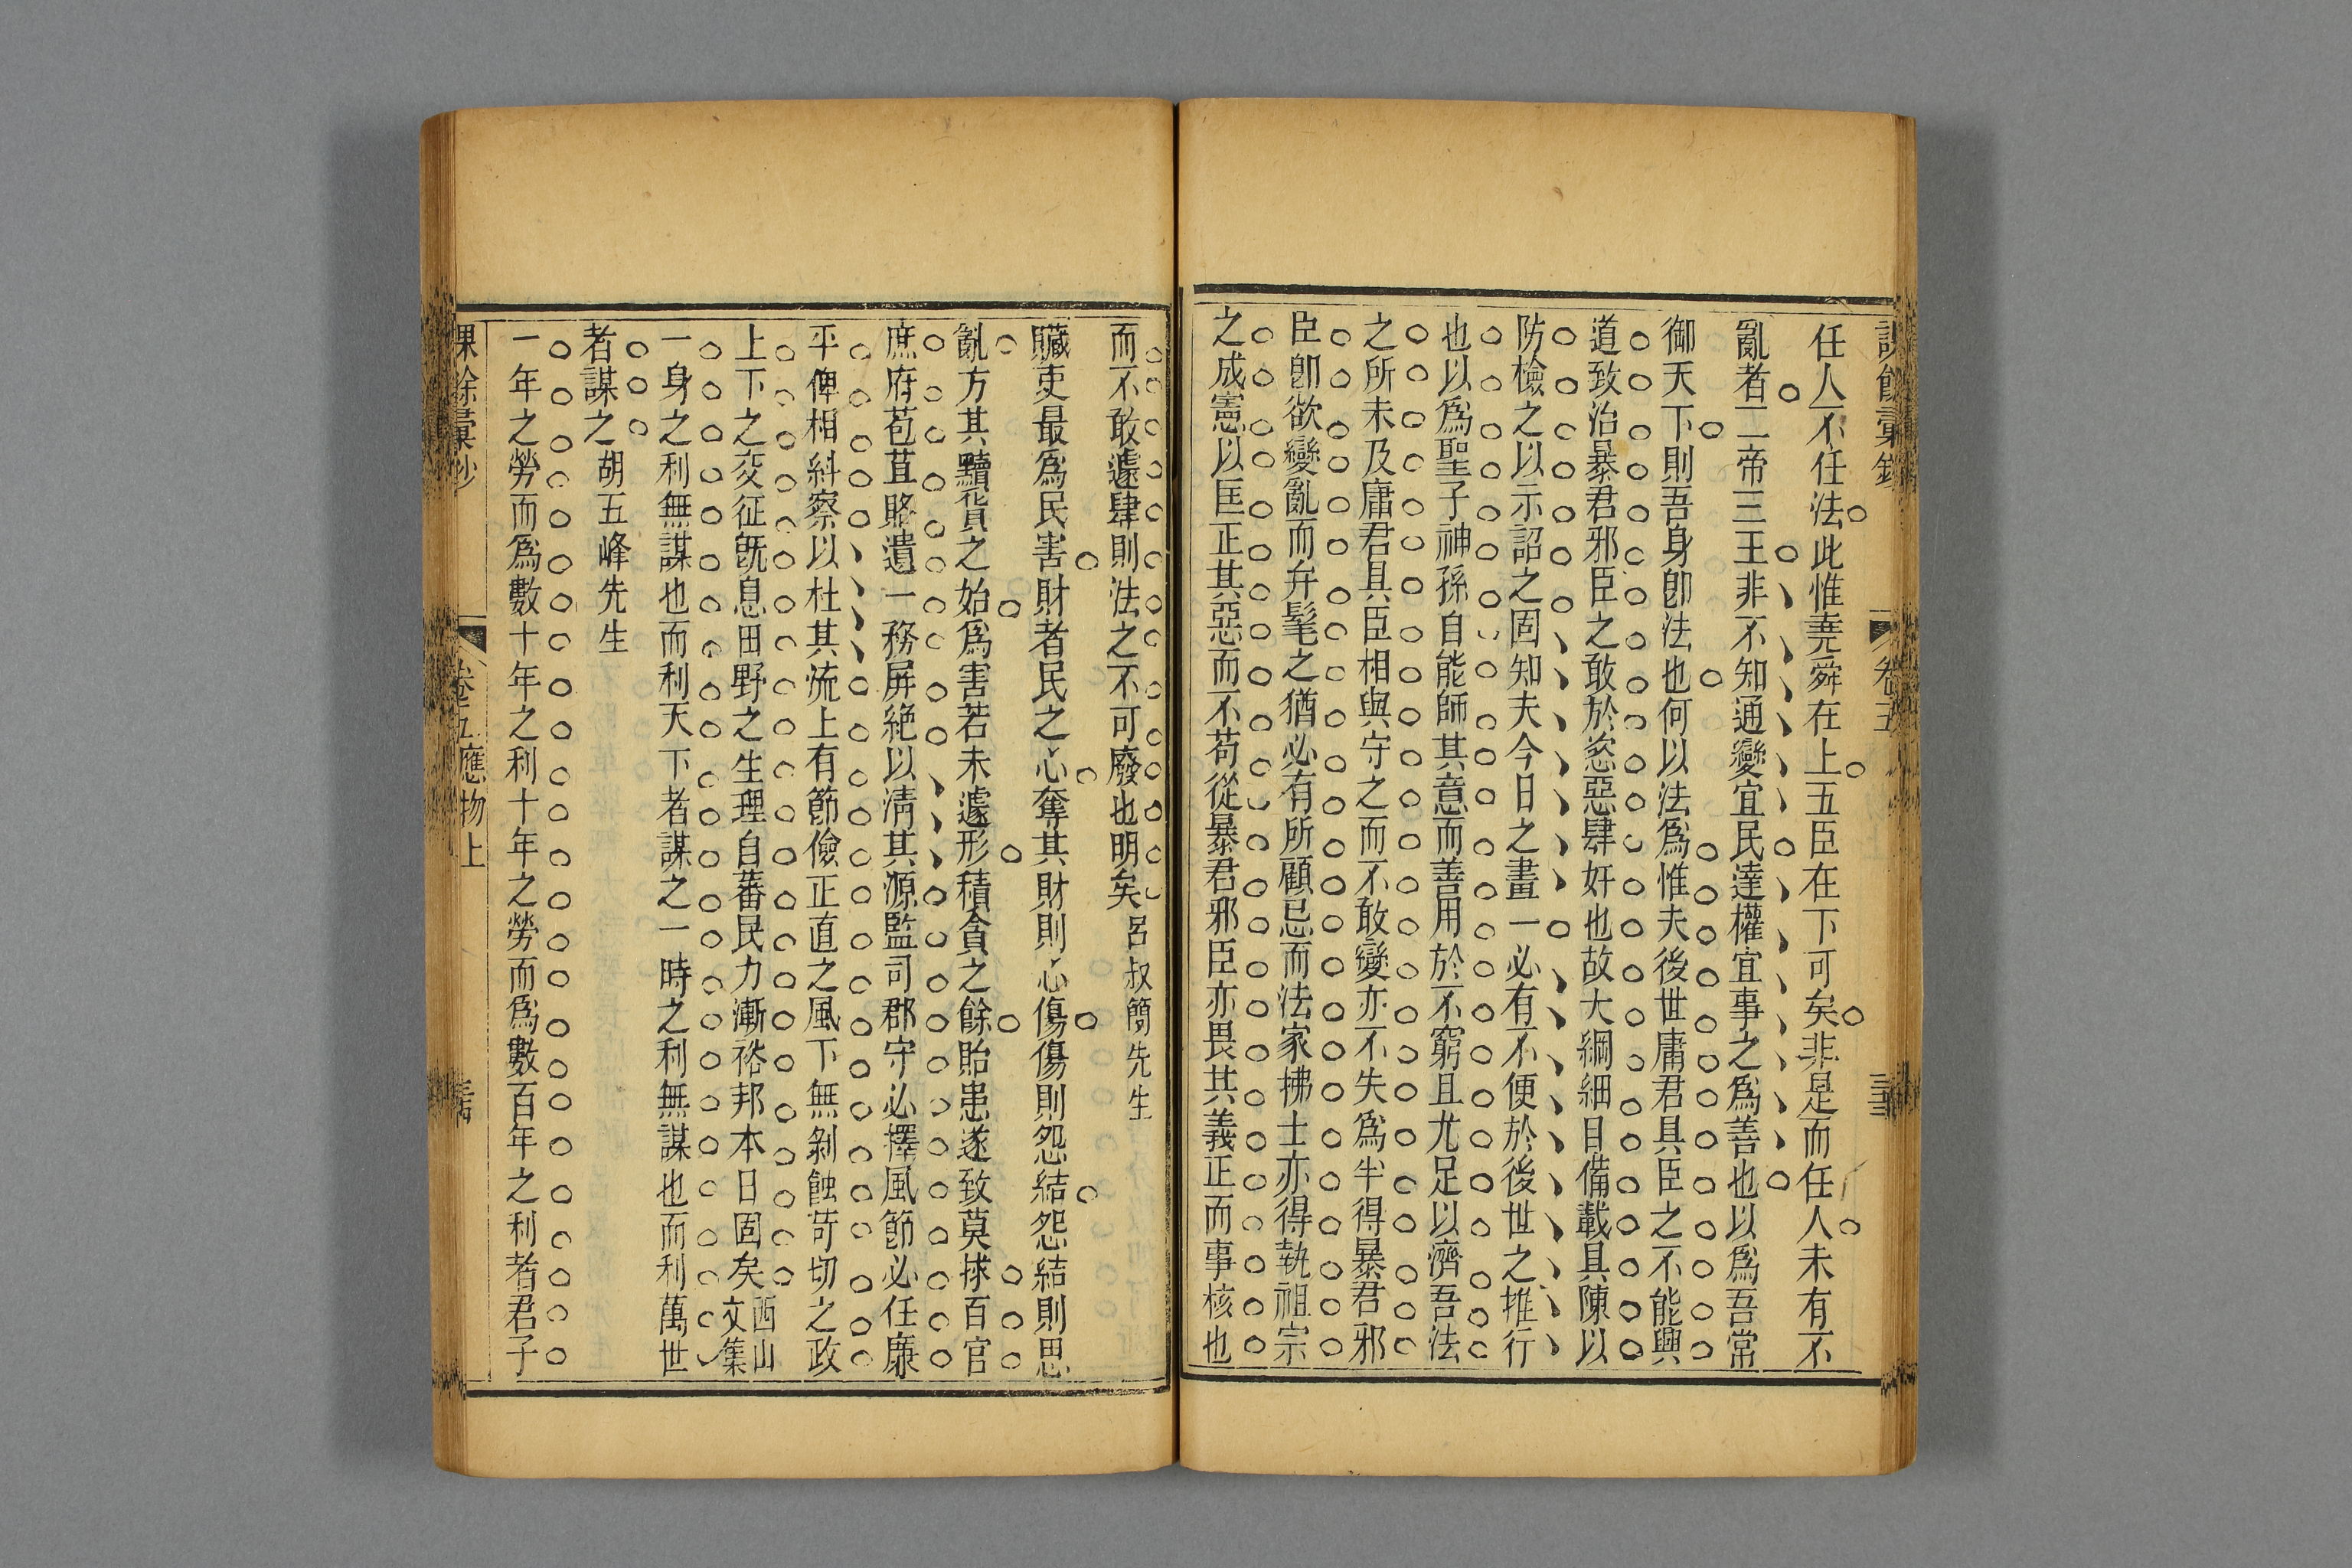 課餘彙鈔
卷五
任人不任法此惟堯舜在上五臣在下可矣非是而任人未有不
亂者二帝三王非不知通變宜民達權宜事之為善也以為吾常
御天下則吾身卽法也何以法為惟夫後世庸君具臣之不能興
道致治暴君邪臣之敢於恣惡肆奸也故大綱細目備載具陳以
防檢之以示詔之固知夫今日之畫一必有不便於後世之推行
也以為聖子神孫自能師其意而善用於不窮且尤足以濟吾法
之所未及庸君具臣相與守之而不敢變亦不失為半得暴君邪
臣卽欲變亂而弁髦之猶必有所顧忌而法家拂士亦得執祖宗
之成憲以匡正其惡而不苟從暴君邪臣亦畏其義正而事核也
而不敢遽肆則法之不可廢也明矣呂叔簡先生
贓吏最為民害財者民之心奪其財則心傷傷則怨結怨結則思
亂方其黷貨之始為害若未遽形積貪之餘貽患遂致莫捄百官
庶府苞苴賂遺一務屏絶以清其源監司郡守必擇風節必任廉
平俾相糾察以杜其流上有節儉正直之風下無剝蝕苛切之政
上下之交征旣息田野之生理自蕃民力漸裕邦本日固矣西山文集
一身之利無謀也而利天下者謀之一時之利無謀也而利萬世
者謀之胡五峰先生
一年之勞而為數十年之利十年之勞而為數百年之利者君子
課餘彙鈔
卷五應物上